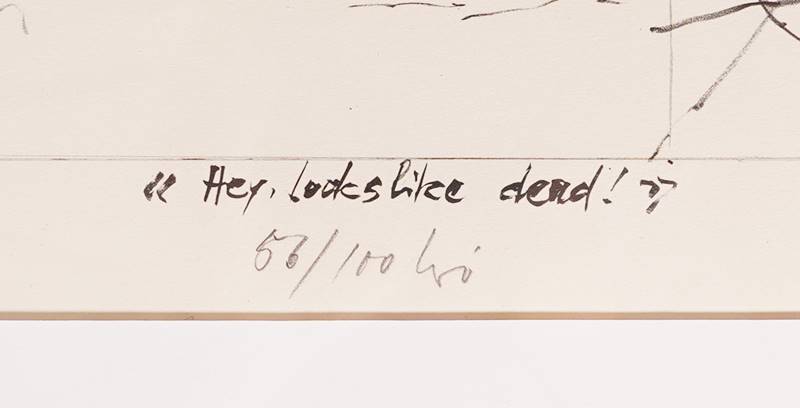 « Hey, looks like dead! »
56/100